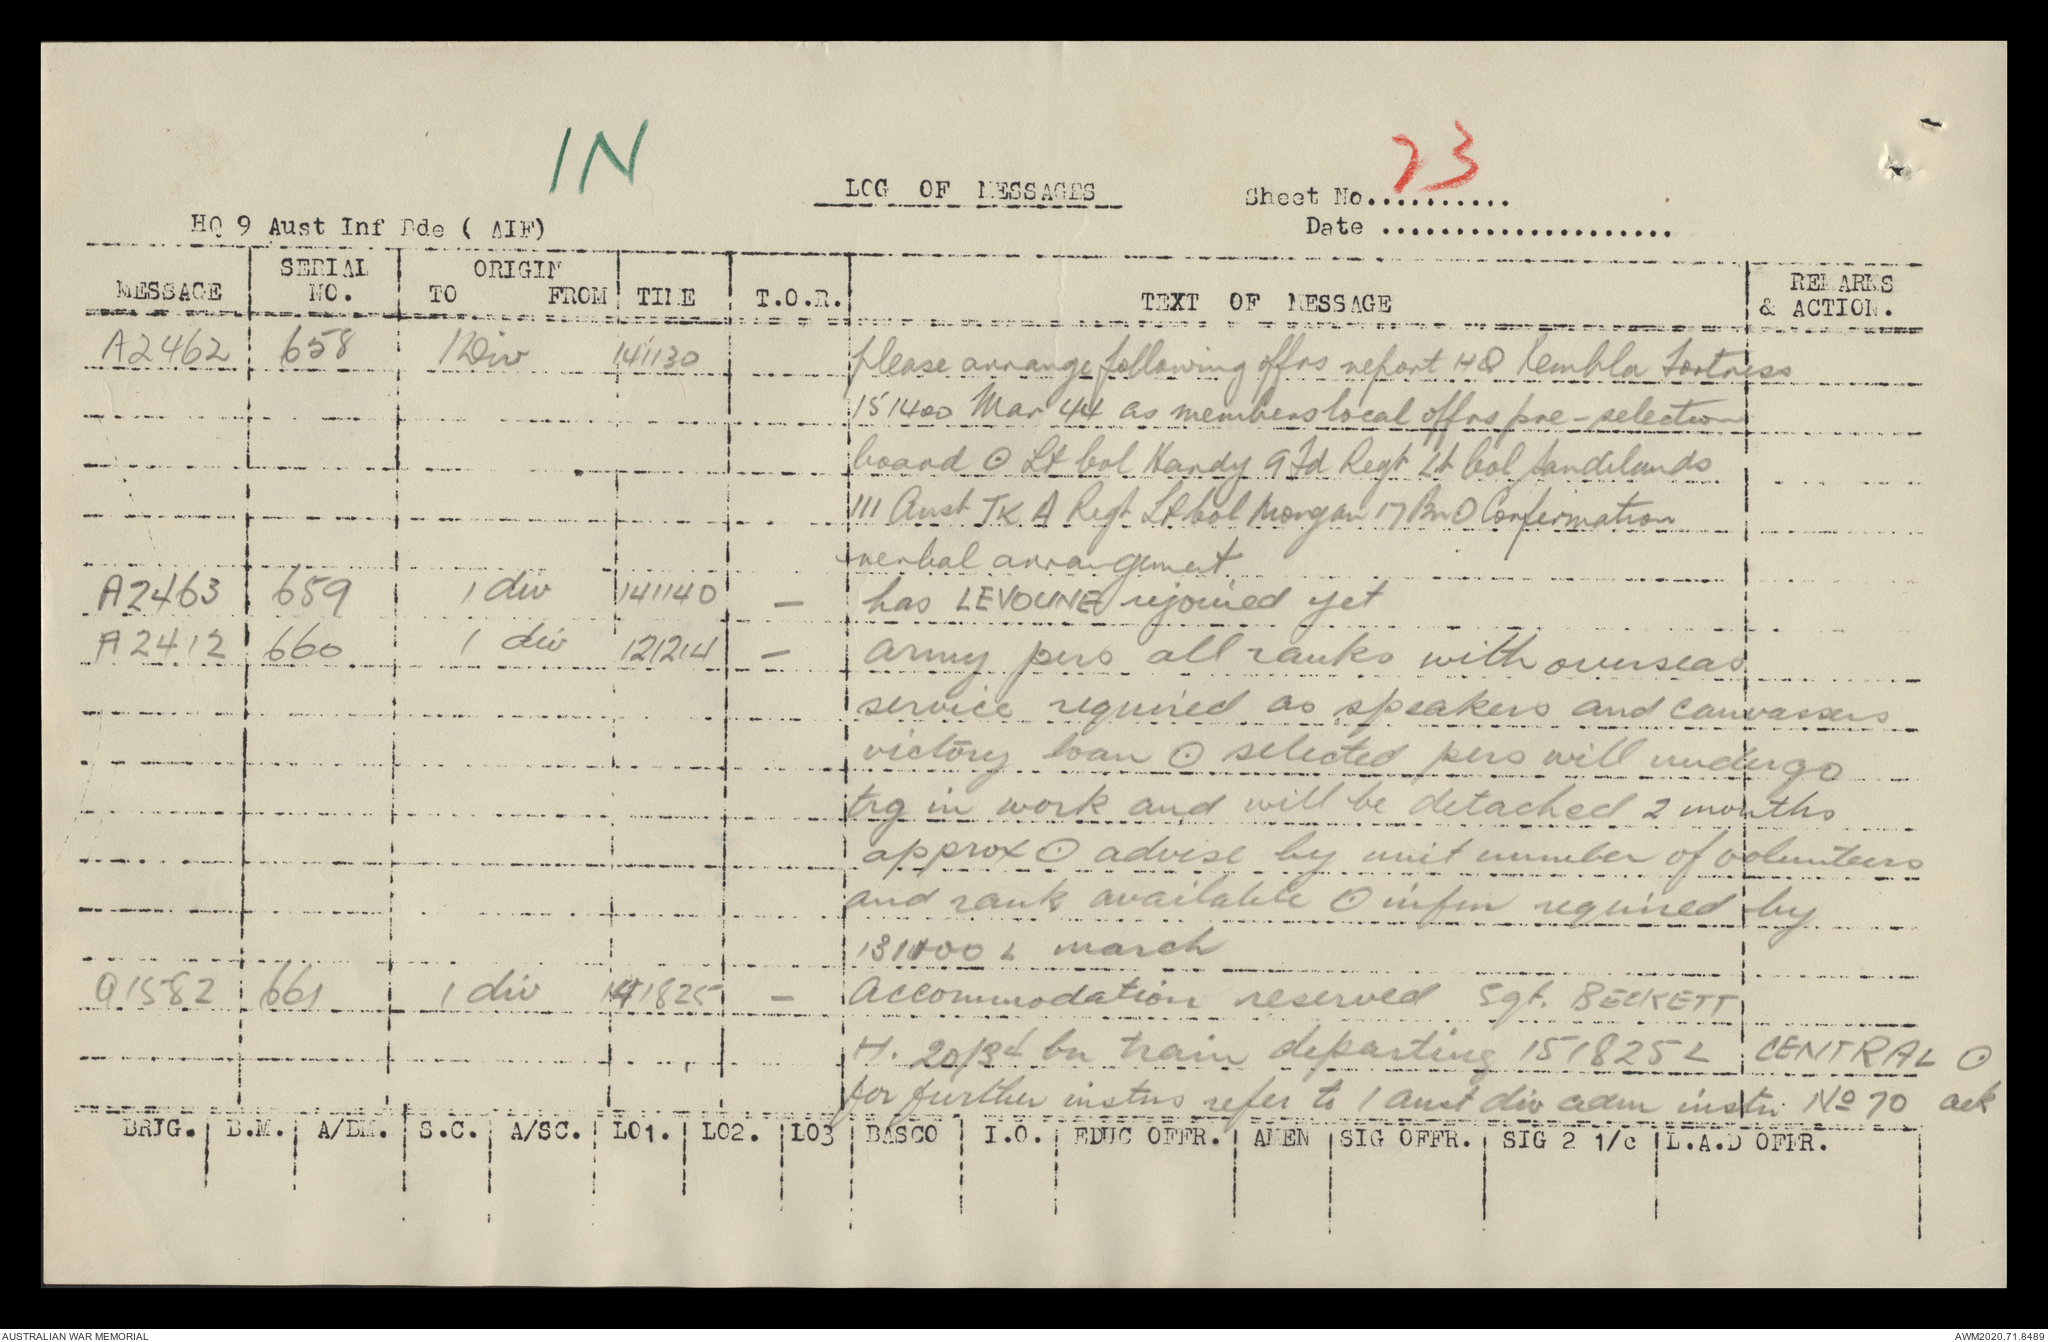 IN
73
LOG OF MESSAGES
Sheet No..........
HQ 9 Aust Inf Bde ( AIF)
Date ....................
MESSAGE SERIAL NO. ORIGIN TO FROM TIME T.O.R. TEXT OF MESSAGE REMARKS & ACTION.
A2462 658 1 Div 141130 please arrange following offrs report HQ Kembla Fortress
151400 Mar 44 as members local offrs pre-selection
board ⊙ Lt Col Handy 9 Fd Regt Lt Col Sandilands
111 Aust TK A Regt Lt Col Morgan 17 Bn ⊙ Confirmation
verbal arrangement
A2463 659 1 div 141140 — has LEVOUNE rejoined yet
A2412 660 1 div 121214 — army pers all ranks with overseas
service required as speakers and canvassers
victory loan ⊙ selected pers will undergo
trg in work and will be detached 2 months
approx ⊙ advise by unit number of volunteers
and rank available ⊙ infm required by
131400 L march
Q1582 661 1 div 141825 — Accommodation reserved Sgt. BECKETT
H. 20/34 bn train departing 151825L CENTRAL ⊙
for further instns refer to 1 aust div adm instn No 70 ack
BRIG. B.M. A/BM. S.C. A/SC. LO1. LO2. LO3 BASCO I.O. EDUC OFFR. AMEN SIG OFFR. SIG 2 1/c L.A.D OFFR.
AUSTRALIAN WAR MEMORIAL
AWM2020.71.8489